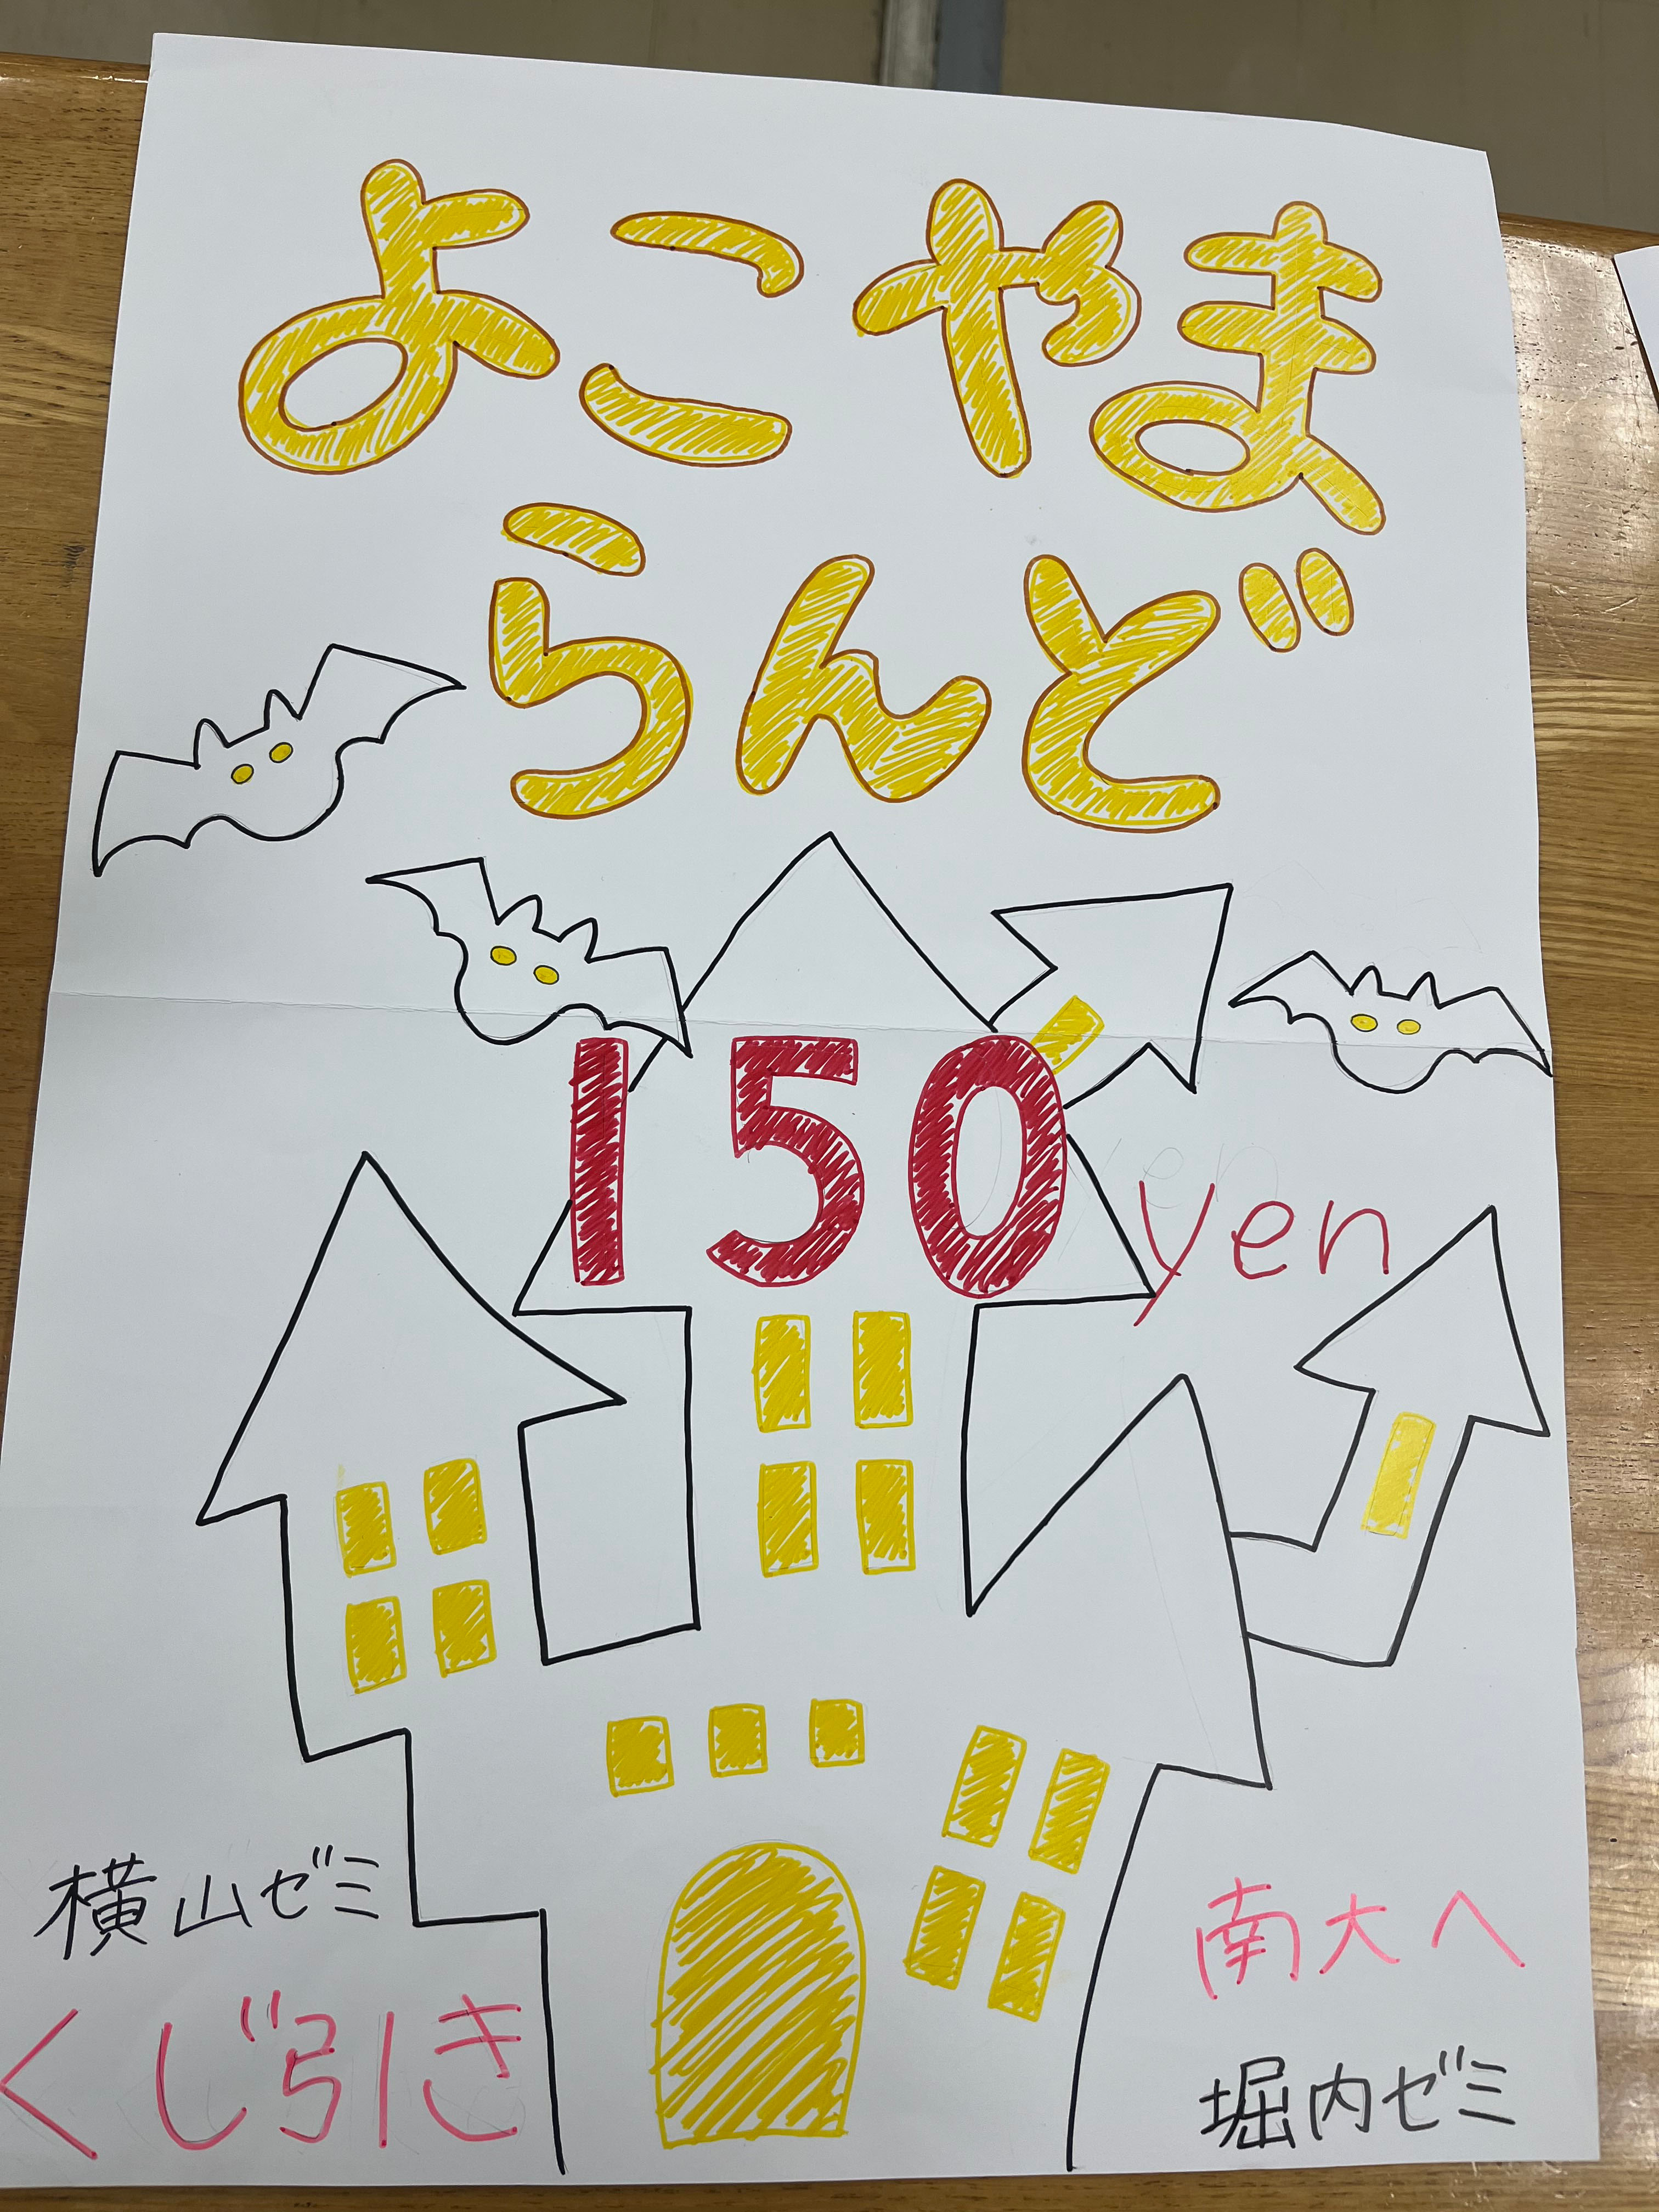 よこやま
らんど
150 yen
横山ゼミ
くじ引き
南大へ
堀内ゼミ